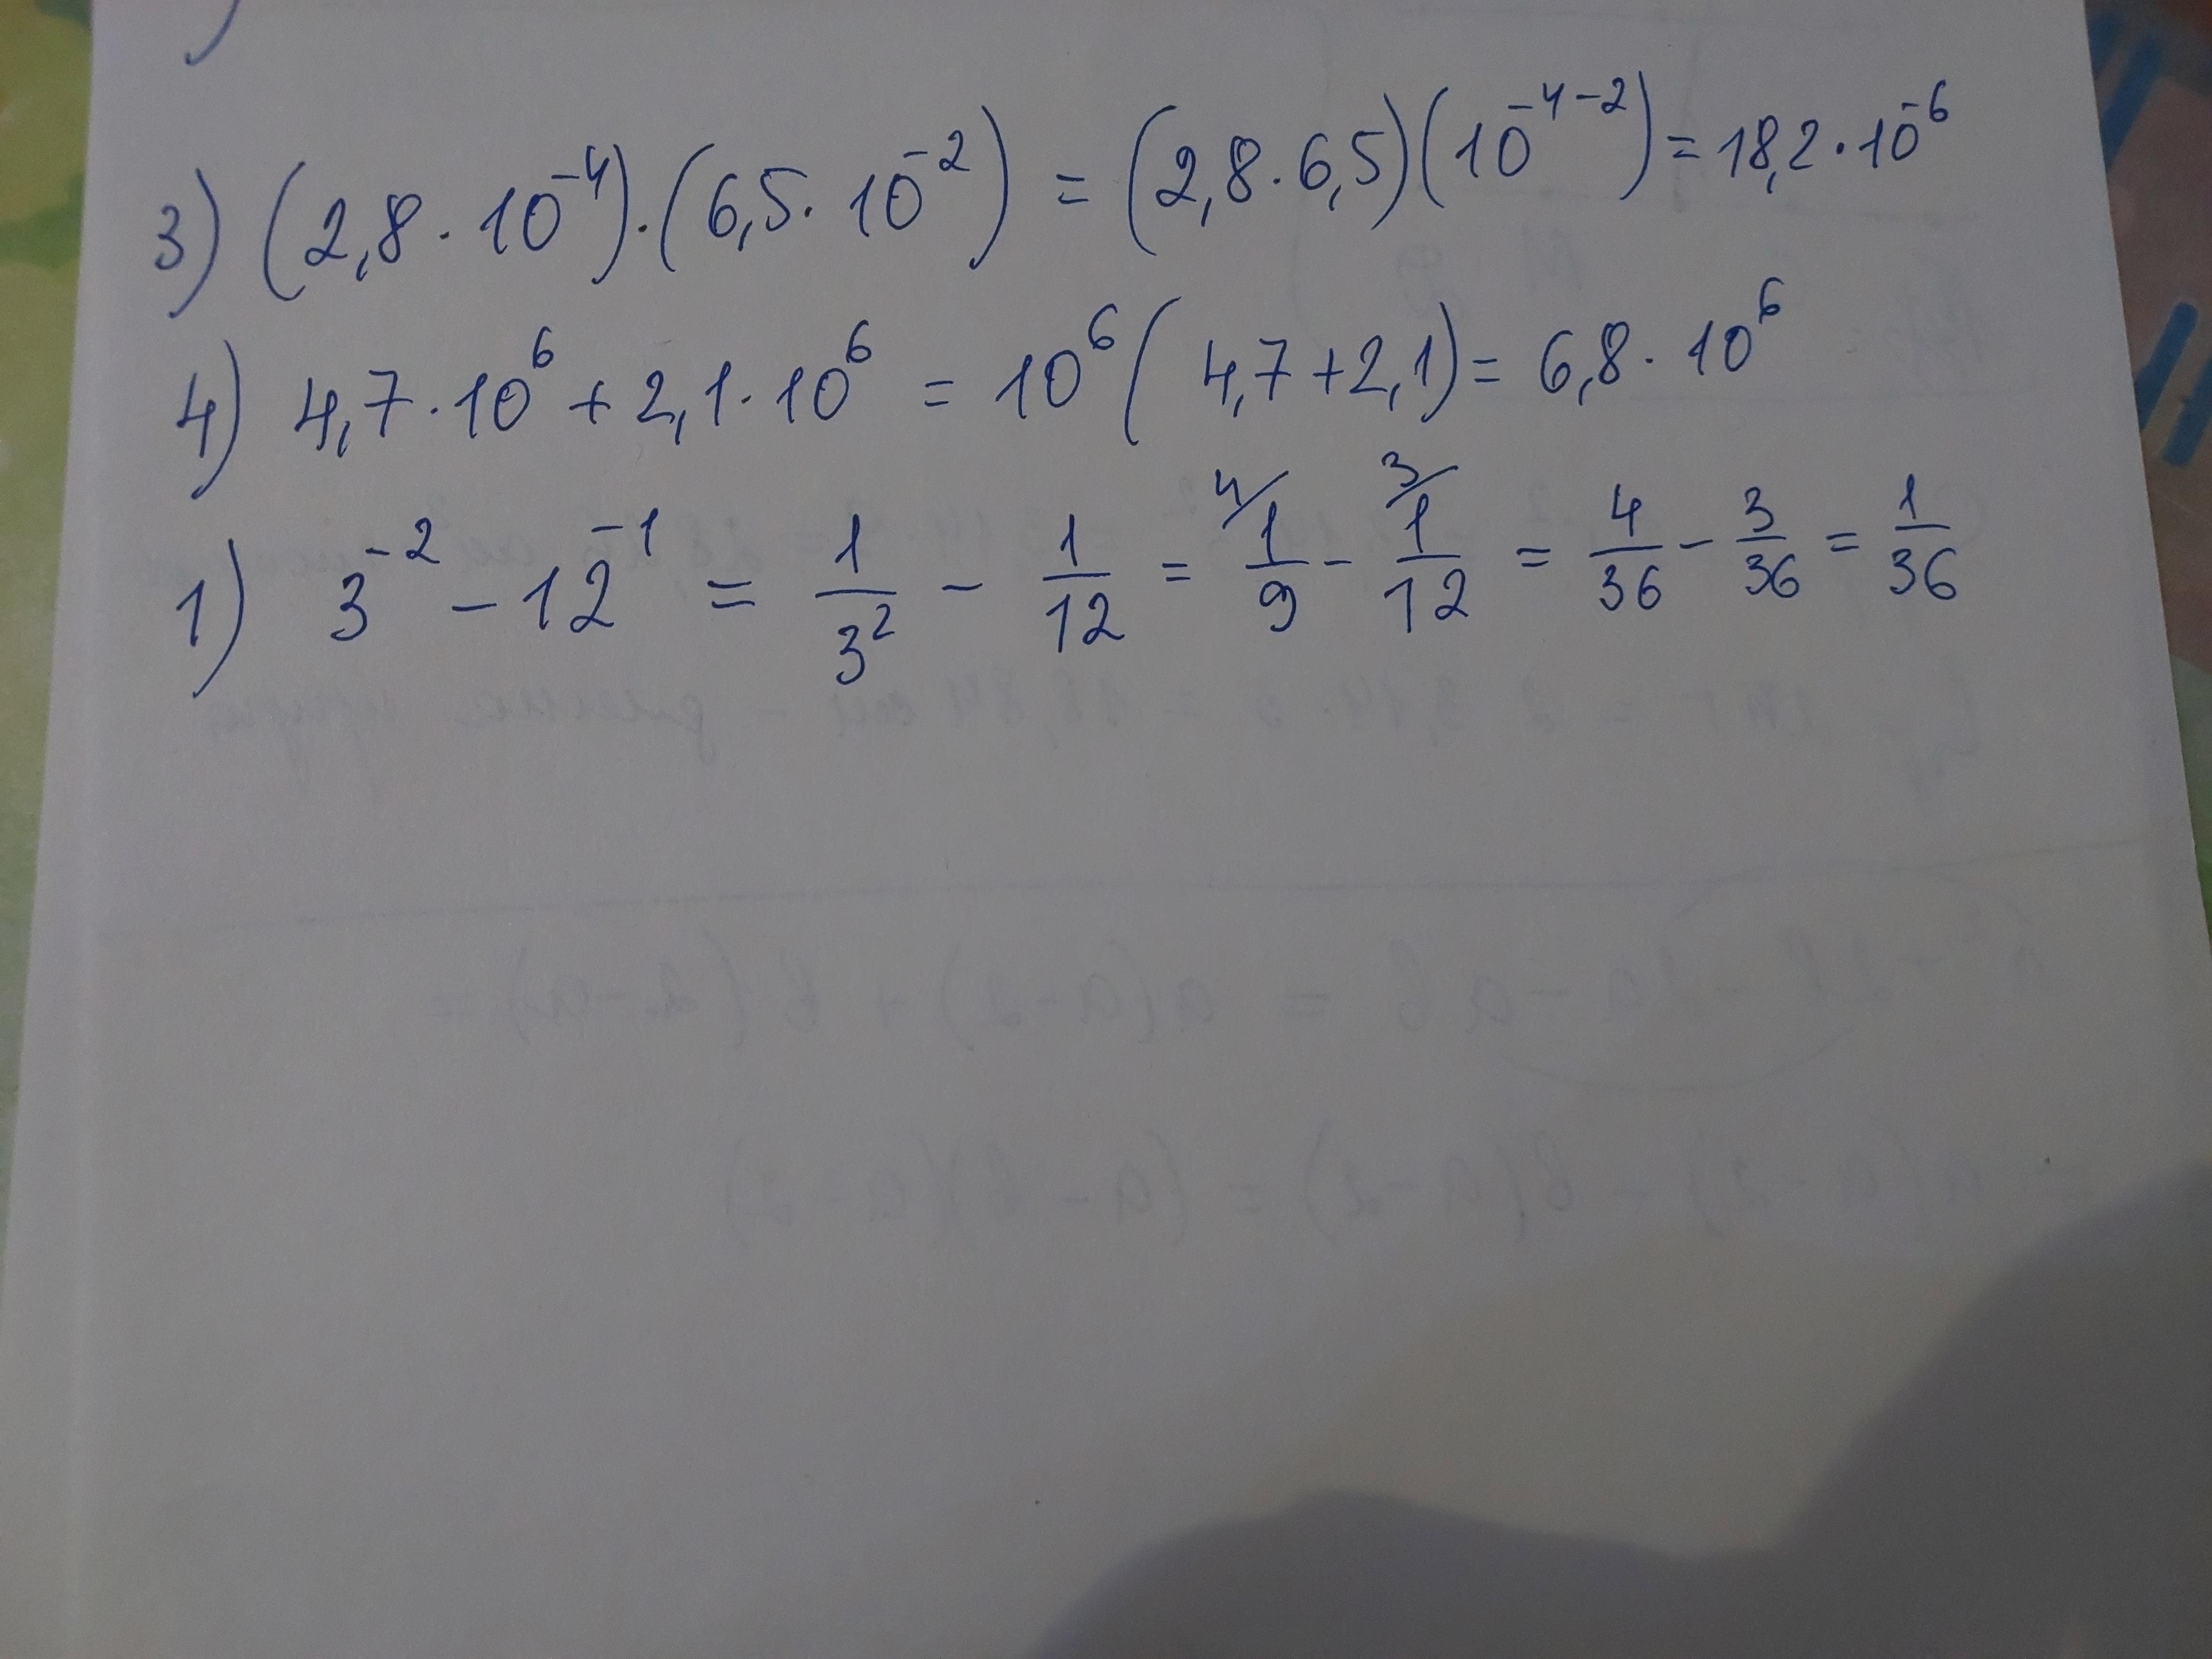 3) (2,8 · 10⁻⁴) · (6,5 · 10⁻²) = (2,8 · 6,5)(10⁻⁴⁻²) = 18,2 · 10⁻⁶
4) 4,7 · 10⁶ + 2,1 · 10⁶ = 10⁶ ( 4,7 + 2,1) = 6,8 · 10⁶
1) 3⁻² − 12⁻¹ = 1/3² − 1/12 = ⁴⁄ 1/9 − ³⁄ 1/12 = 4/36 − 3/36 = 1/36